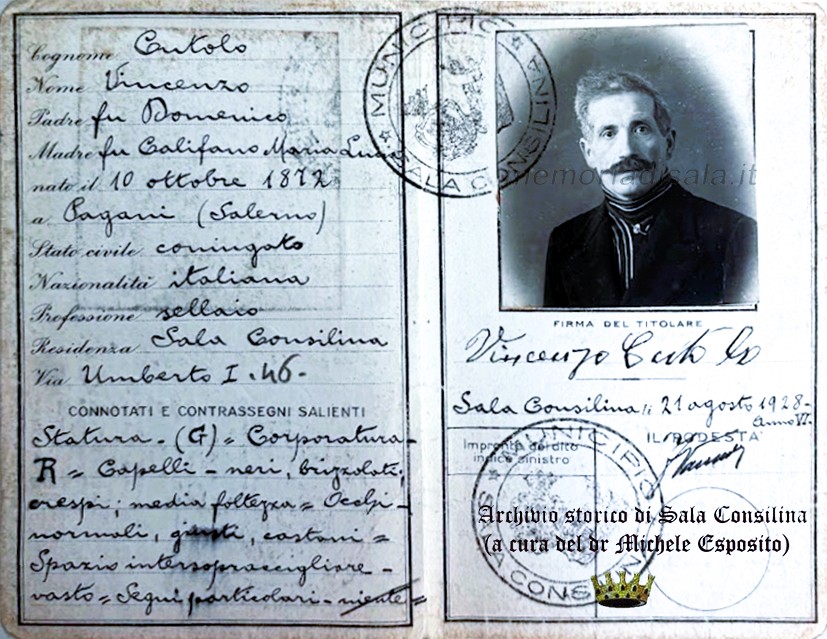 Cognome Cutolo
Nome Vincenzo
Padre fu Domenico
Madre fu Califano Maria Lucia
nato il 10 ottobre 1872
a Pagani (Salerno)
Stato civile coniugato
Nazionalità italiana
Professione sellaio
Residenza Sala Consilina
Via Umberto I. 46.
CONNOTATI E CONTRASSEGNI SALIENTI
Statura - (G) = Corporatura -
R = Capelli - neri, brizzolati,
crespi; media foltezza = Occhi -
normali, giusti, castani =
Spazio intersopraccigliare -
vasto = Segni particolari - niente =
MUNICIPIO
SALA CONSILINA
memoriadisala.it
FIRMA DEL TITOLARE
Vincenzo Cutolo
Sala Consilina, li 21 agosto 1928 -
Anno VI.
IL PODESTÀ
Impronta del dito
indice sinistro
MUNICIPIO
SALA CONSILINA
Archivio storico di Sala Consilina
(a cura del dr Michele Esposito)